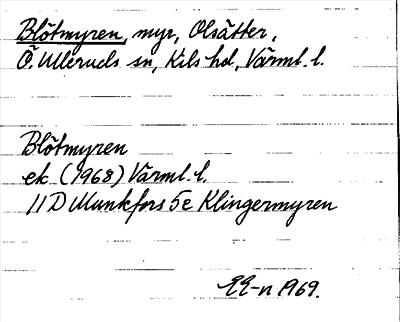 Blötmyren, myr, Olsätter,
Ö. Ulleruds sn, Kils hd, Värml. l.
Blötmyren
ek. (1968) Värml. l.
11D Munkfors 5e Klingermyren
EE-n 1969.